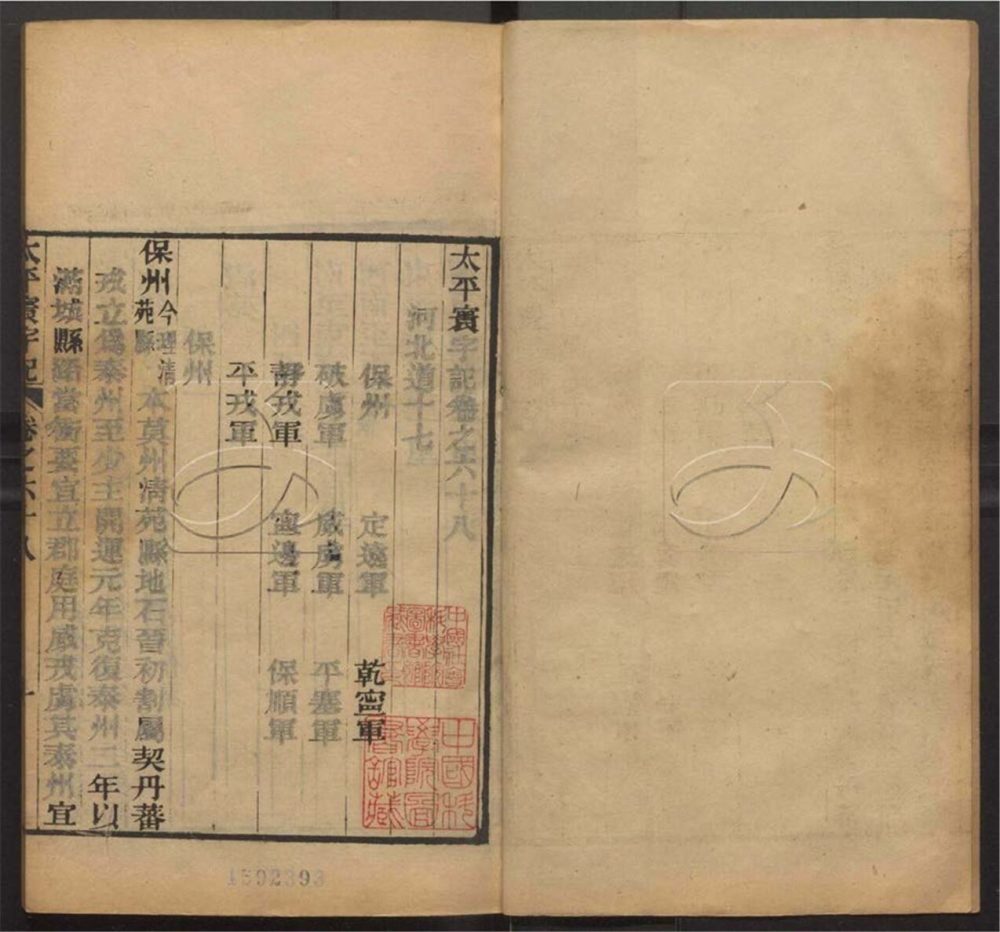 太平寰宇記卷之六十八
河北道十七
保州 定遠軍 乾寧軍
破虜軍 威虜軍 平塞軍
靜戎軍 寧邊軍 保順軍
平戎軍
保州
保州今理清苑縣 本莫州清苑縣地石晉初割屬契丹蕃
戎立爲泰州至少主開運元年克復泰州二年以
滿城縣路當衝要宜立郡庭用威戎虜其泰州宜
太平寰宇記 卷之六十八 一
中國科學院圖書館藏
1592393